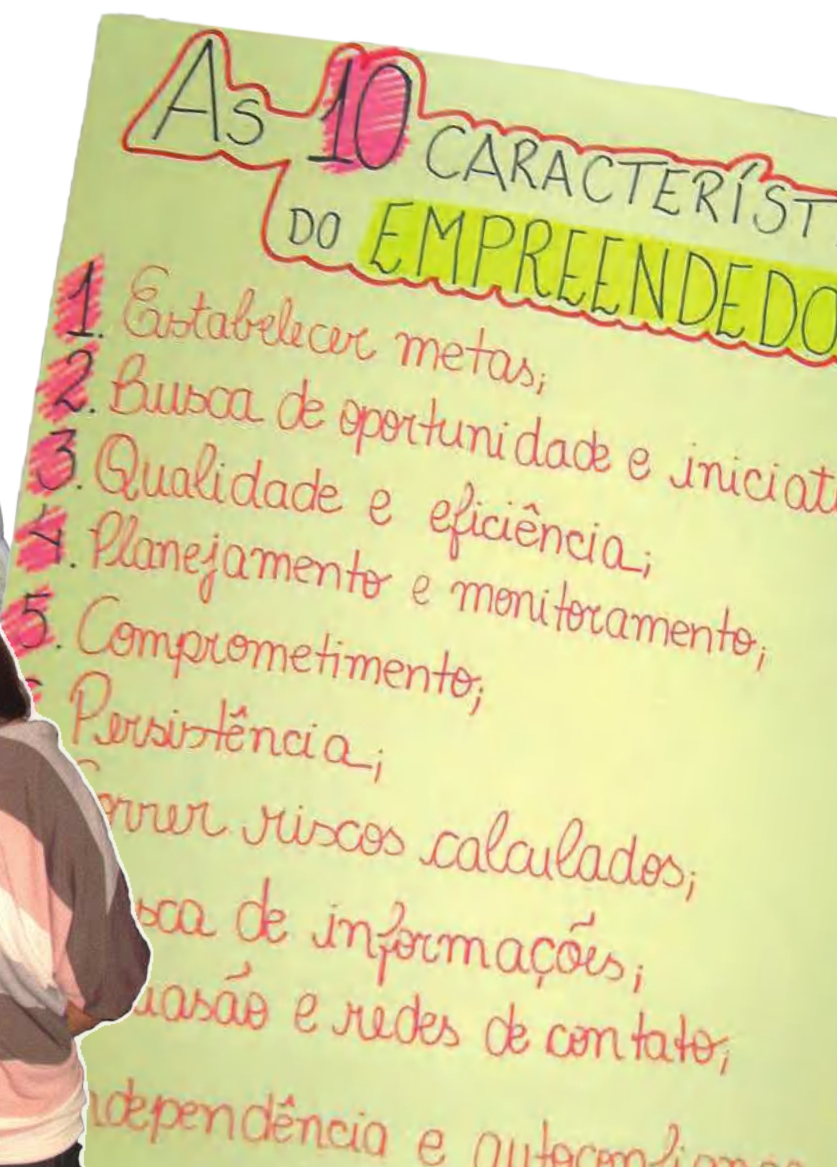 As 10 CARACTERÍST
DO EMPREENDEDO
1. Estabelecer metas;
2. Busca de oportunidade e iniciat
3. Qualidade e eficiência;
4. Planejamento e monitoramento;
5. Comprometimento;
Persistência;
orrer riscos calculados;
sca de informações;
uasão e redes de contato;
ndependência e autoconfian